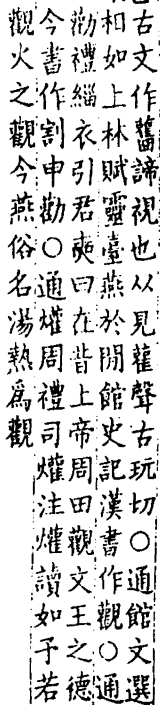 古文作𥍉諦視也从見雚聲古玩切○通館文選
相如上林賦靈臺燕於閒館史記漢書作觀○通
勸禮緇衣引君奭曰在昔上帝周田觀文王之德
今書作割申勸○通爟周禮司爟注爟讀如予若
觀火之觀今燕俗名湯熱爲觀